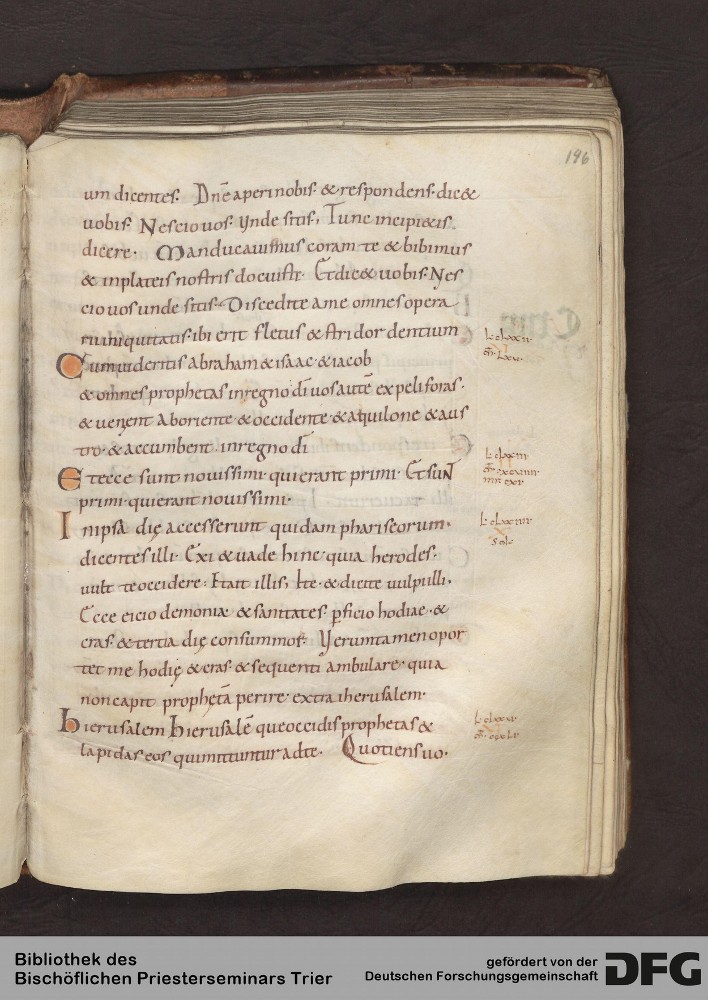 196
um dicentes. Dnē aperi nobis. & respondens. dic&
vobis. Nescio vos. Vnde sitis, Tunc incipi&is.
dicere. Manducavimus coram te & bibimus
& inplateis nostris docuisti. Et dic& vobis. Nes
cio vos unde sitis. Discedite ame omnes opera
rii iniquitatis. ibi erit fletus & stridor dentium
Cum videritis abraham & isaac. & iacob
& omnes prophetas inregno dī vos autē expelli foras.
& venient aboriente. & occidente & aquilone & aus
tro. & accumbent. inregno dī
Et ecce sunt novissimi qui erant primi. Et sunt
primi. qui erant novissimi.
Inipsa dię accesserunt quidam phariseorum.
dicentes illi. Exi & vade hinc. quia herodes.
vult te occidere. & ait illis, Ite. & dicite vulpi illi.
Ecce eicio demonia & sanitates. pficio hodiae. &
cras. & tertia dię consummor. Verumtamen opor
tet me hodię & cras. & sequenti ambulare. quia
non capit prophętā perire. extra iherusalem.
Hierusalem hierusalē que occidis prophetas &
lapidas eos qui mittuntur adte. Quotiens vo.
Bibliothek des
Bischöflichen Priesterseminars Trier
gefördert von der
Deutschen Forschungsgemeinschaft
DFG